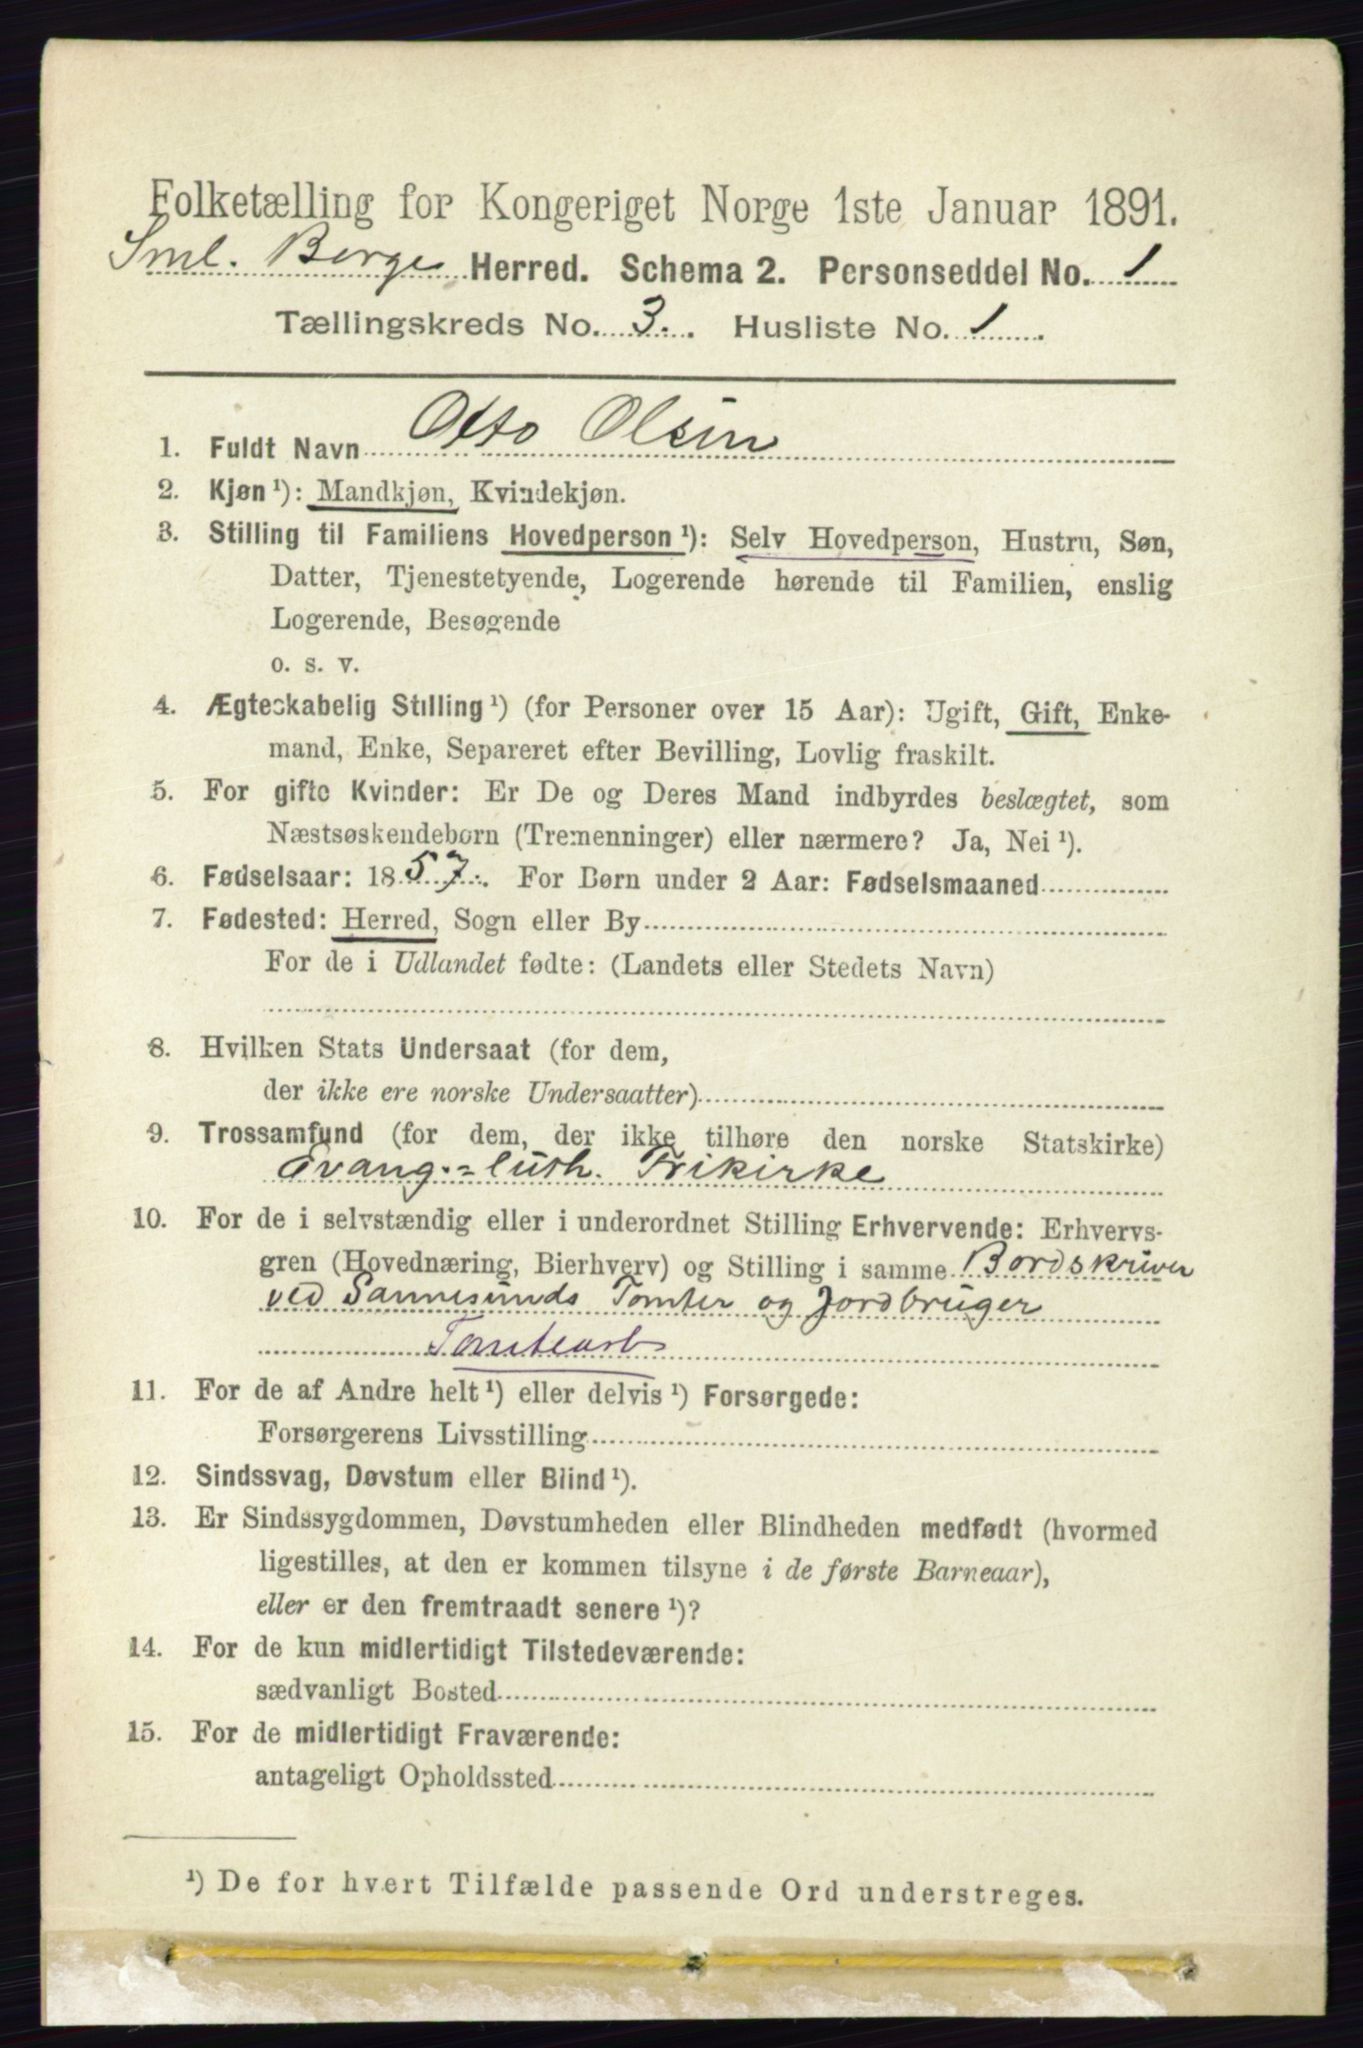 Folketælling for Kongeriget Norge 1ste Januar 1891.
Sml. Borge Herred. Schema 2. Personseddel No. 1
Tællingskreds No. 3. Husliste No. 1.
1. Fuldt Navn Otto Olsen
2. Kjøn ¹): Mandkjøn, Kvindekjøn.
3. Stilling til Familiens Hovedperson ¹): Selv Hovedperson, Hustru, Søn,
Datter, Tjenestetyende, Logerende hørende til Familien, enslig
Logerende, Besøgende
o. s. v.
4. Ægteskabelig Stilling ¹) (for Personer over 15 Aar): Ugift, Gift, Enke-
mand, Enke, Separeret efter Bevilling, Lovlig fraskilt.
5. For gifte Kvinder: Er De og Deres Mand indbyrdes beslægtet, som
Næstsøskendebørn (Tremenninger) eller nærmere? Ja, Nei ¹).
6. Fødselsaar: 1857. For Børn under 2 Aar: Fødselsmaaned
7. Fødested: Herred, Sogn eller By
For de i Udlandet fødte: (Landets eller Stedets Navn)
8. Hvilken Stats Undersaat (for dem,
der ikke ere norske Undersaatter)
9. Trossamfund (for dem, der ikke tilhøre den norske Statskirke)
Evang.=luth. Frikirke
10. For de i selvstændig eller i underordnet Stilling Erhvervende: Erhvervs-
gren (Hovednæring, Bierhverv) og Stilling i samme Bordskriver
ved Sannesunds Tomter og Jordbruger
Tomtearb
11. For de af Andre helt ¹) eller delvis ¹) Forsørgede:
Forsørgerens Livsstilling
12. Sindssvag, Døvstum eller Blind ¹).
13. Er Sindssygdommen, Døvstumheden eller Blindheden medfødt (hvormed
ligestilles, at den er kommen tilsyne i de første Barneaar),
eller er den fremtraadt senere ¹)?
14. For de kun midlertidigt Tilstedeværende:
sædvanligt Bosted
15. For de midlertidigt Fraværende:
antageligt Opholdssted
¹) De for hvert Tilfælde passende Ord understreges.